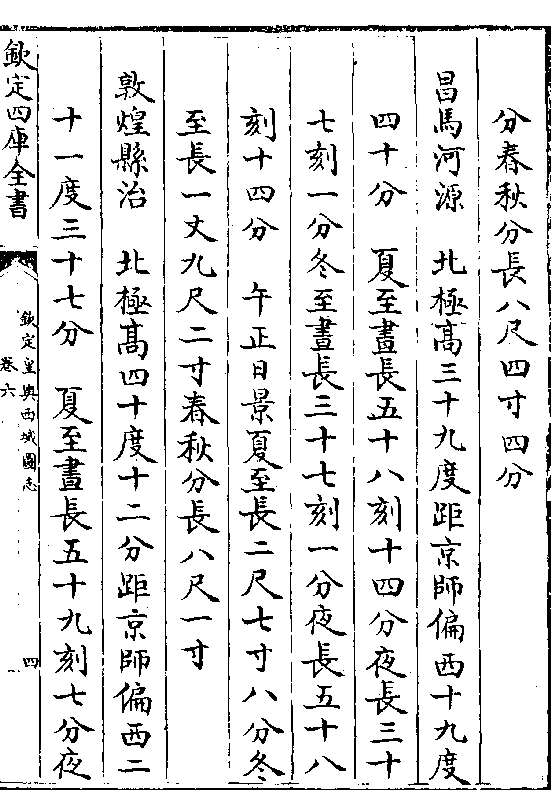 分春秋分長八尺四寸四分
昌馬河源　北極高三十九度距京師偏西十九度
四十分　夏至晝長五十八刻十四分夜長三十
七刻一分冬至晝長三十七刻一分夜長五十八
刻十四分　午正日景夏至長二尺七寸八分冬
至長一丈九尺二寸春秋分長八尺一寸
敦煌縣治　北極高四十度十二分距京師偏西二
十一度三十七分　夏至晝長五十九刻七分夜
欽定四庫全書
欽定皇輿西域圖志
卷六
四